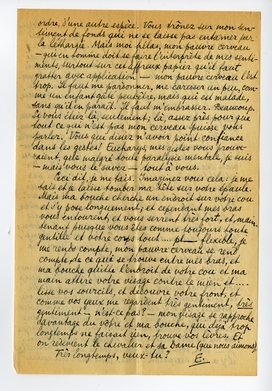 ordre, d'une autre espèce. Vous trônez sur mon sen-
timent de fonds qui ne se laisse pas entamer sur
la léthargie. Mais moi, hélas, mon pauvre cerveau
— qui en somme doit se faire l'interprète de mes senti-
ments, surtout sur cet affreux papier qu'il faut
gratter avec application — mon pauvre cerveau l'est
trop. Il faut me pardonner, me caresser un peu, com-
me un enfant gâté peut-être, mais qui est malade,
sans qu'il en paraît. Il faut m'embrasser. Beaucoup.
Soyons chez là, seulement; là, assez près pour que
tout ce qui n'est pas mon cerveau puisse vous
parler. Vous me disiez n'avoir point confiance
dans les gestes! Eucharis, mes gestes vous prouve-
raient, que malgré toute paralysie mentale, je suis
— mais vous le savez — tout à vous.
Ceci dit, je me tais. Imaginez vous cela: je me
tais et je laisse tomber ma tête sur votre épaule.
Mais ma bouche cherche un endroit sur votre cou
et s'y pose longuement; et cependant mes bras
vous entourent, et vous serrent très fort, et, main-
tenant puisque vous êtes comme toujours toute
gentille et votre corps tout ... pt — flexible, je
me rends compte, mon pauvre cerveau se rend
compte de ce que se trouve entre mes bras, et
ma bouche quitte l'endroit de votre cou et ma
main attire votre visage contre le mien et ....
lisse vos sourcils, et découvre votre front, et
comme vos yeux me regardent très gentiment, très
gentiment — n'est-ce pas? — mon visage se rapproche
davantage du vôtre et ma bouche, qui déjà trop
longtemps ne faisait rien, trouve vos lèvres. Et
on revient le chevalier et sa Dame (que nous aimons).
Très longtemps, veux-tu?
E.